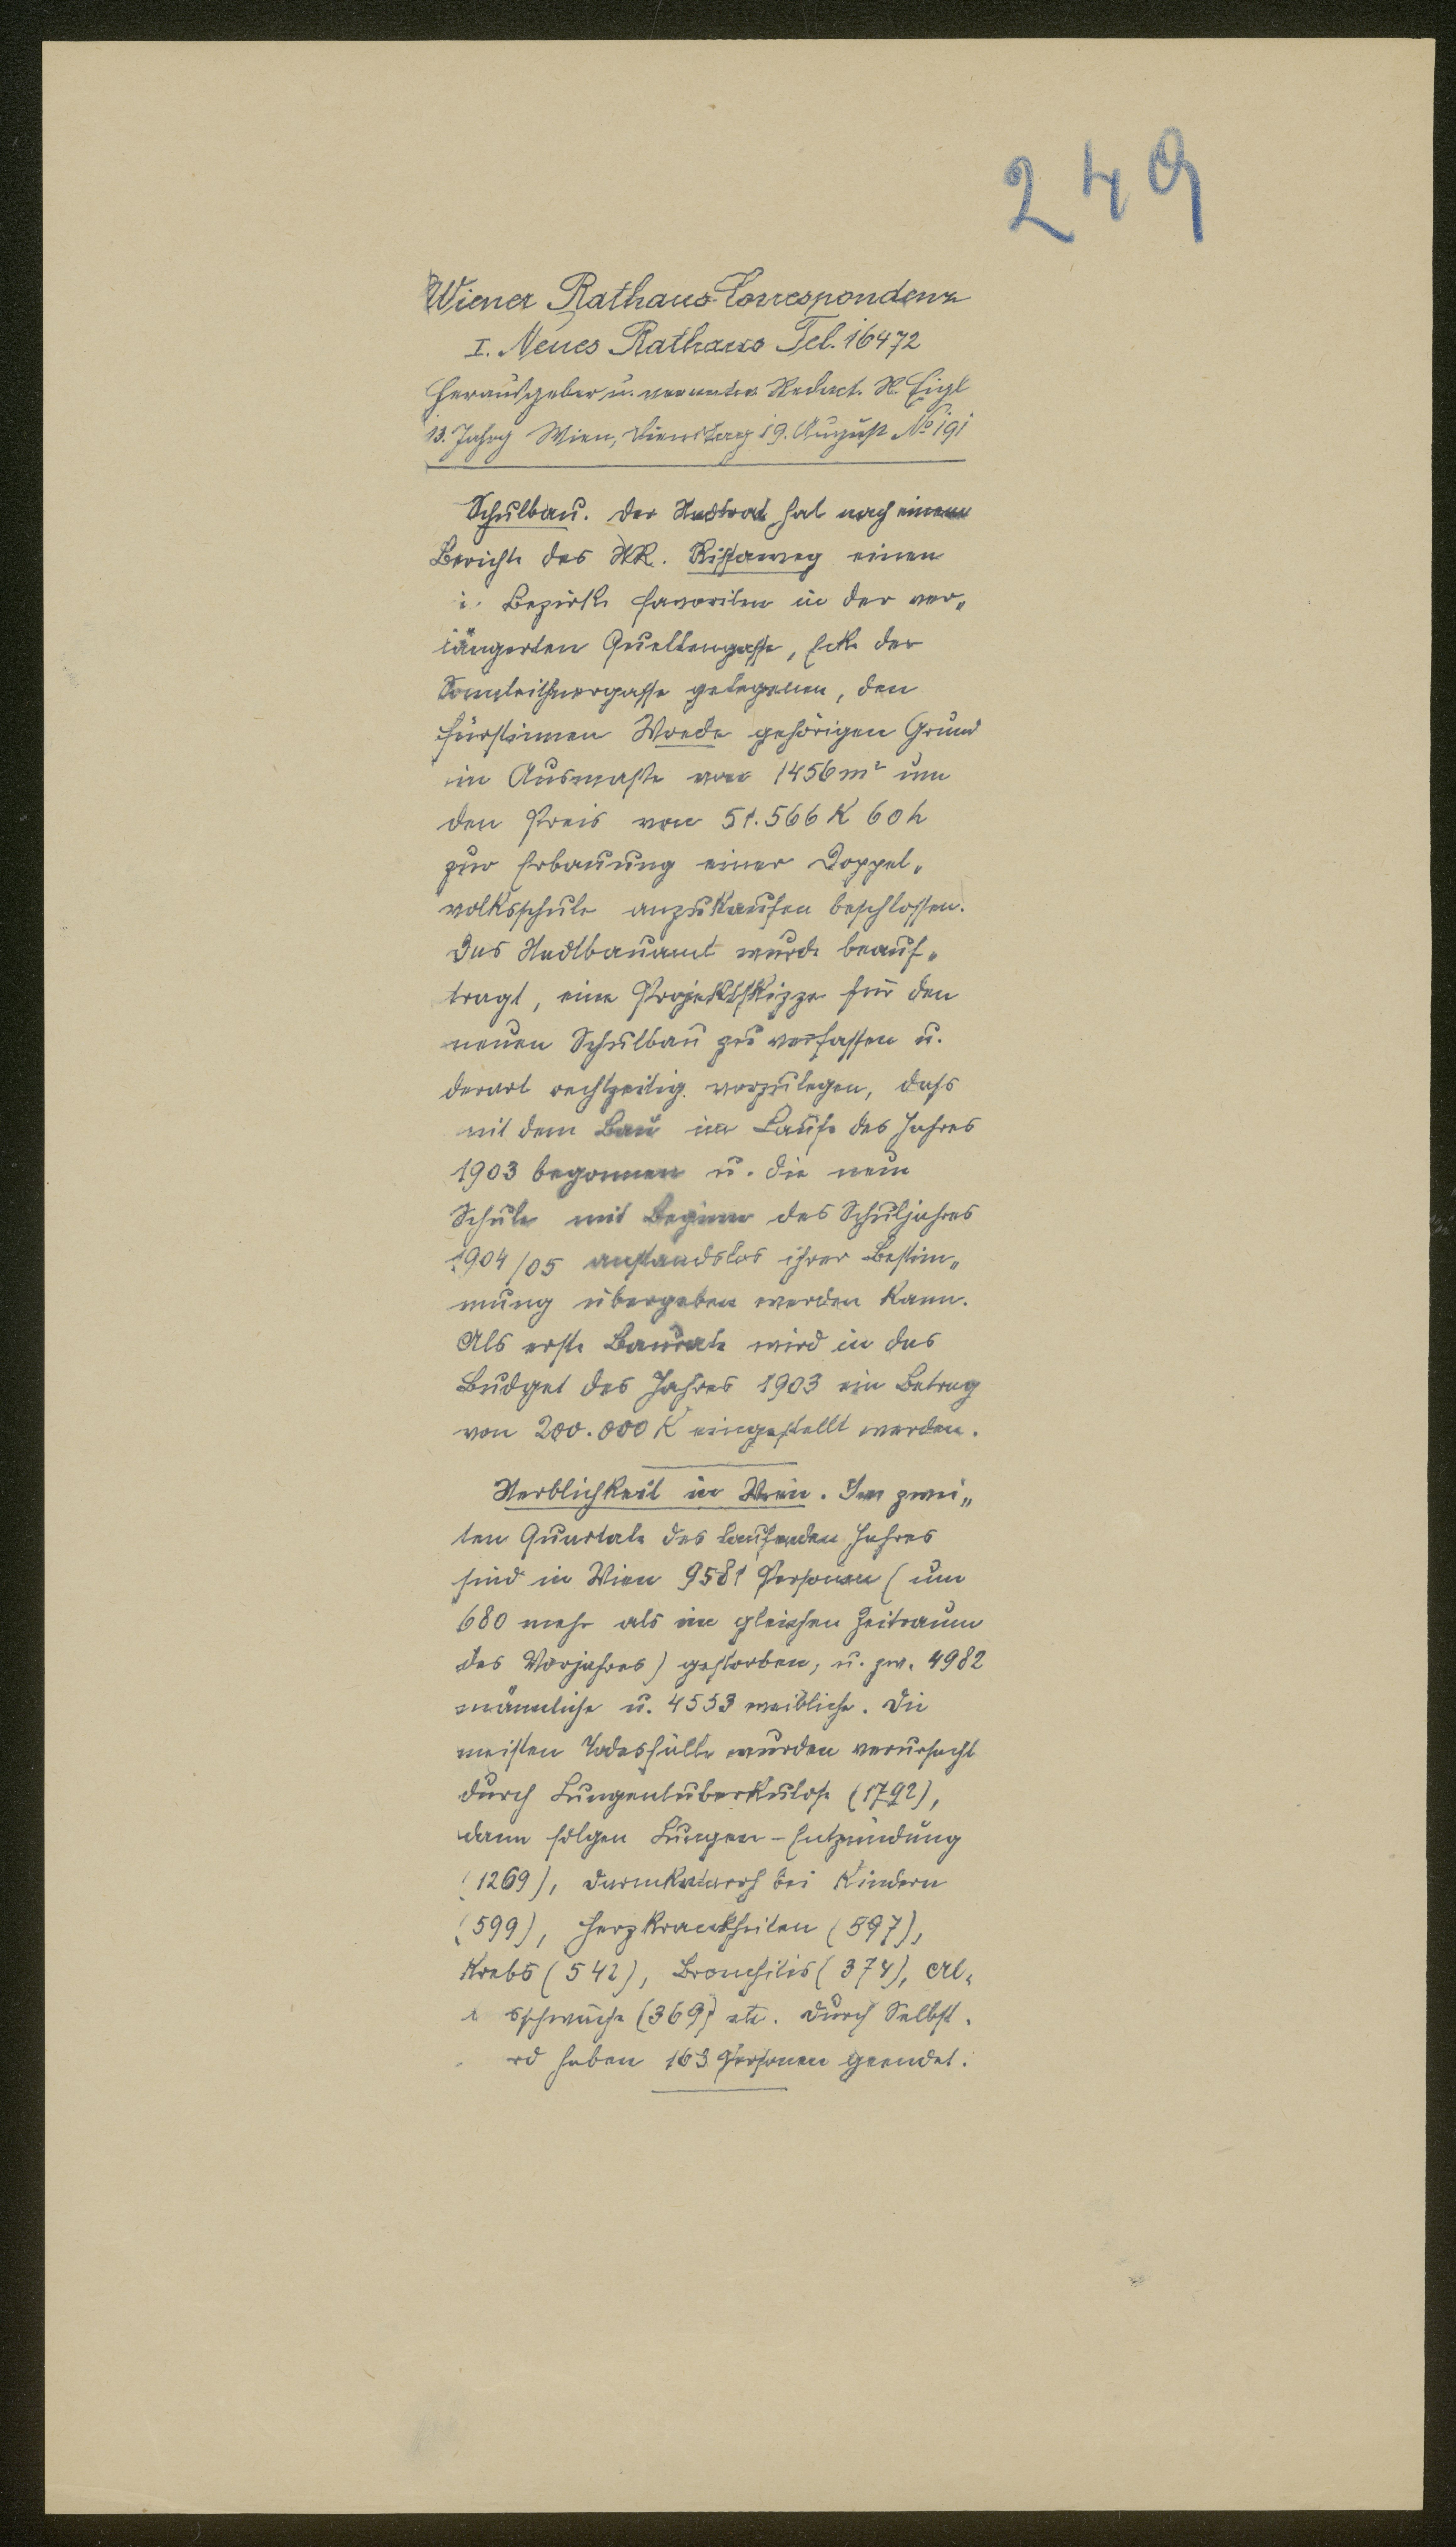 249
Wiener Rathaus-Correspondenz
I. Neues Rathaus Tel. 16472
Herausgeber u. verantw. Redact. R. Eigl
13. Jahrg Wien, Dienstag 19. August No 191
Schulbau. Der Stadtrat hat nach einem
Berichte des StR. Rissaweg einen
i. Bezirke Favoriten in der ver„
längerten Quellengasse, Ecke der
Sonnleithnergasse gelegenen, den
Fürstinnen Wrede gehörigen Grund
im Ausmaße von 1456 m² um
den Preis von 51.566 K 60 h
zur Erbauung einer Doppel„
volksschule anzukaufen beschlossen.
Das Stadtbauamt wurde beauf„
tragt, eine Projektskizze für den
neuen Schulbau zu verfassen u.
derart rechtzeitig vorzulegen, daß
mit dem Bau im Laufe des Jahres
1903 begonnen u. die neue
Schule mit Beginn des Schuljahres
1904/05 anstandslos ihrer Bestim„
mung übergeben werden kann.
Als erste Baurate wird in das
Budget des Jahres 1903 ein Betrag
von 200.000 K eingestellt werden.
Sterblichkeit in Wien. Im zwei„
ten Quartale des laufenden Jahres
sind in Wien 9581 Personen (um
680 mehr als im gleichen Zeitraum
des Vorjahres) gestorben, u. zw. 4982
männliche u. 4553 weibliche. Die
meisten Todesfälle wurden verursacht
durch Lungentuberkulose (1792),
dann folgen Lungen-Entzündung
(1269), Darmkatarrh bei Kindern
(599), Herzkrankheiten (597),
Krebs (542), Bronchitis (374), Al„
sschwäche (369) etc. Durch Selbst„
rd haben 163 Personen geendet.